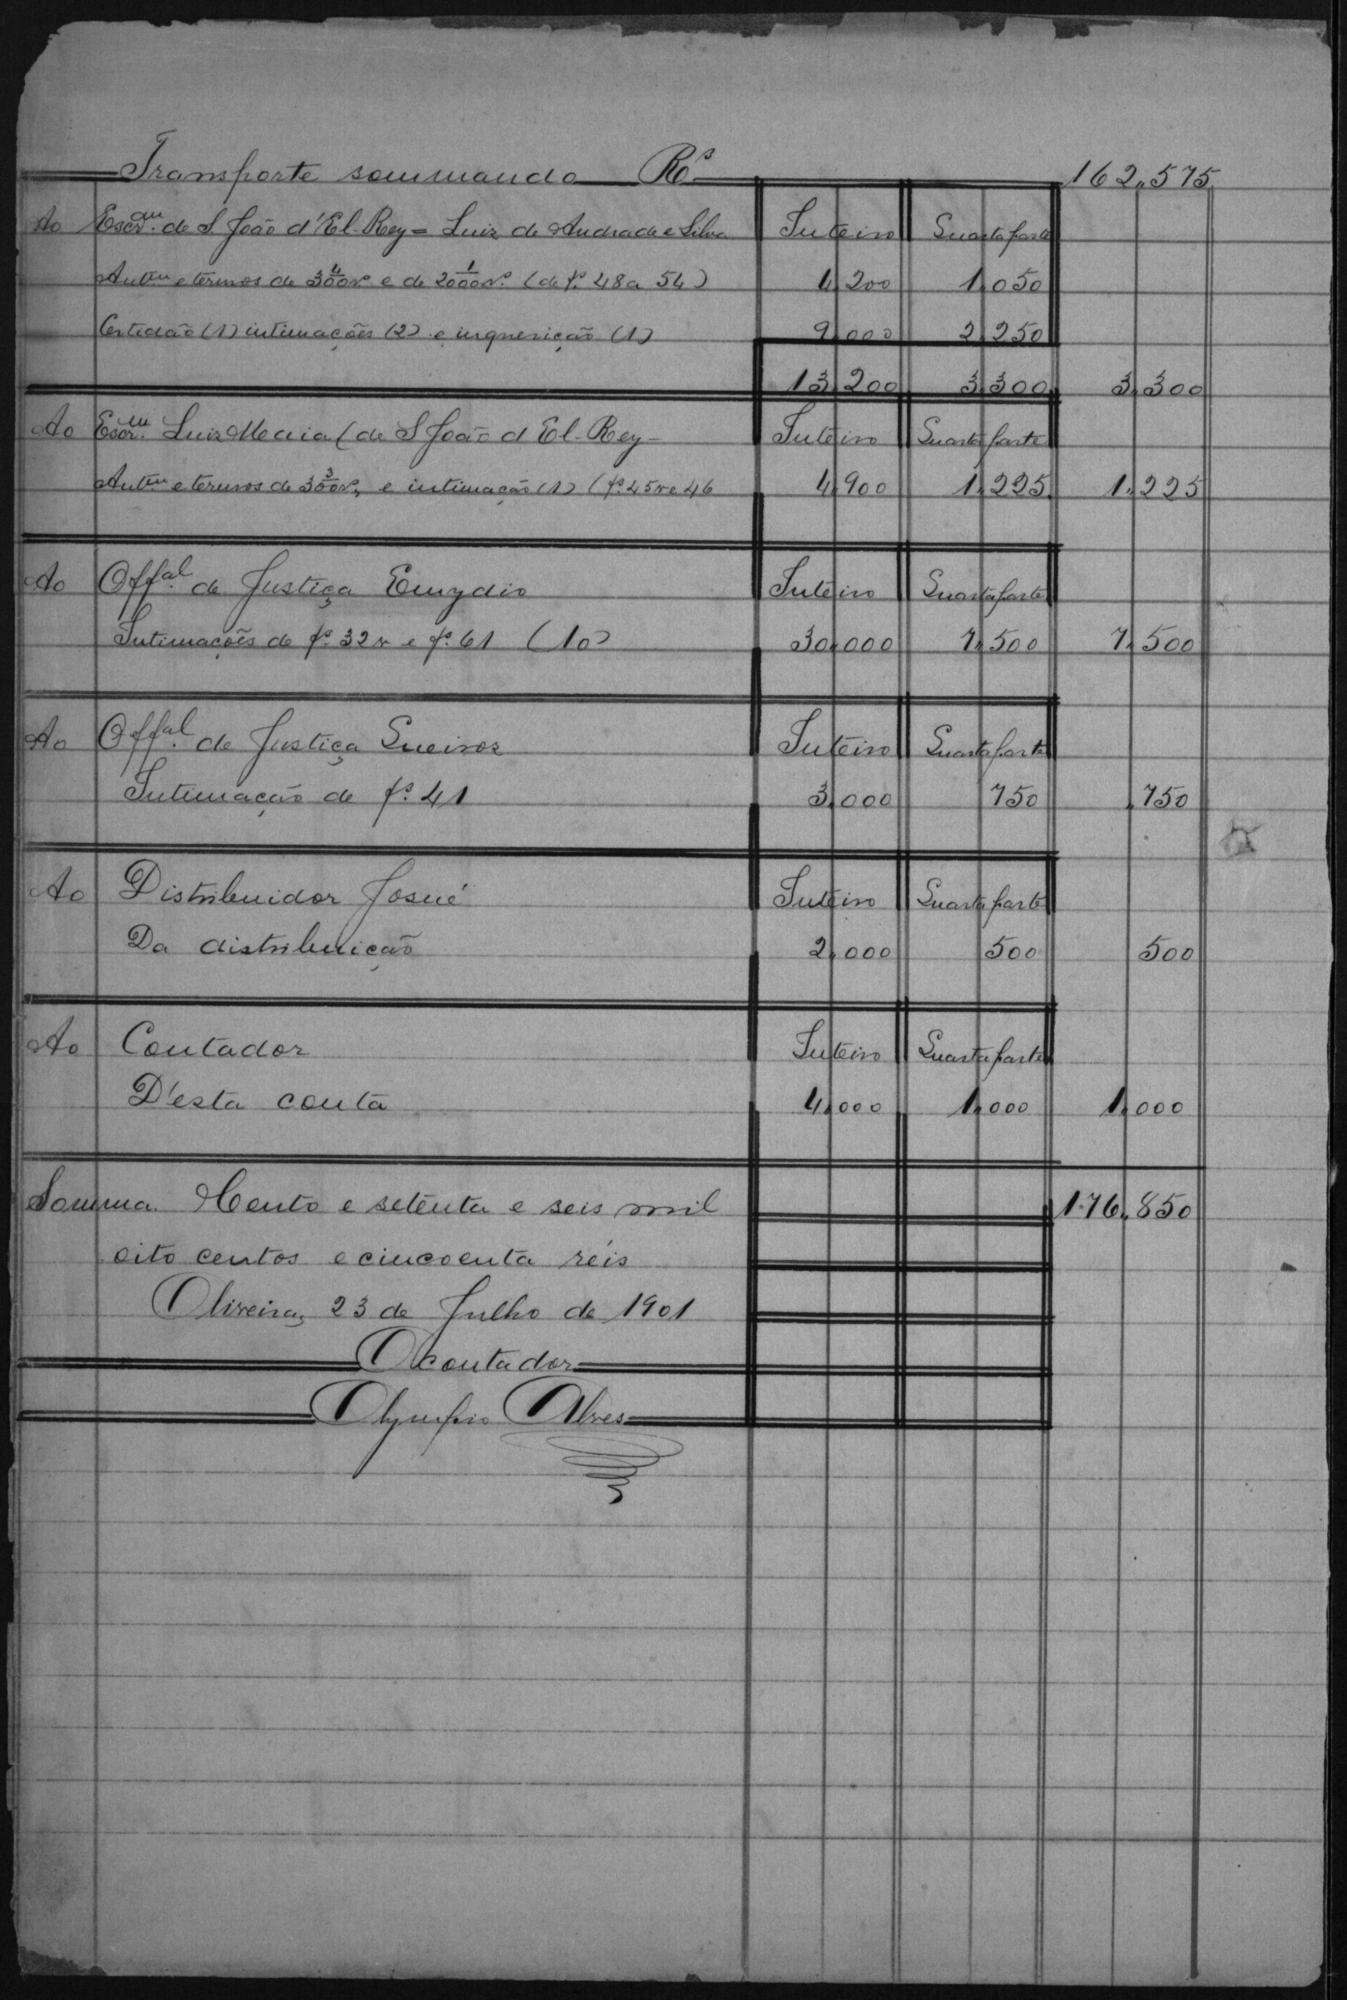 Transporte sommando Rs 162,575
Ao Escrm. de S João d'El-Rey = Luiz de Andrade e Silva Inteiro Quarta parte
Autm e termos de 300 rs e de 2000 rs. (de fs. 48 a 54) 4,200 1,050
Certidão (1) intimações (2) e inquerição (1) 9,000 2,250
13,200 3,300 3,300
Ao Escrm. Luiz (de S João d El-Rey - Inteiro Quarta parte
Autm e termos de 300 rs, e intimação (1) (fs. 45 v e 46 4,900 1,225 1,225
Ao Offal. de Justiça Emydio Inteiro Quarta parte
Intimações de fs. 32 v e fs. 61 (10) 30,000 7,500 7,500
Ao Offal. de Justiça Queiroz Inteiro Quarta parte
Intimação de fs. 41 3,000 750 ,750
Ao Distribuidor Josué Inteiro Quarta parte
Da distribuição 2,000 500 500
Ao Contador Inteiro Quarta parte
D'esta conta 4,000 1,000 1,000
Somma. Cento e setenta e seis mil 176,850
oito centos e cincoenta réis
Oliveira, 23 de Julho de 1901
O contador
Olympio Alves